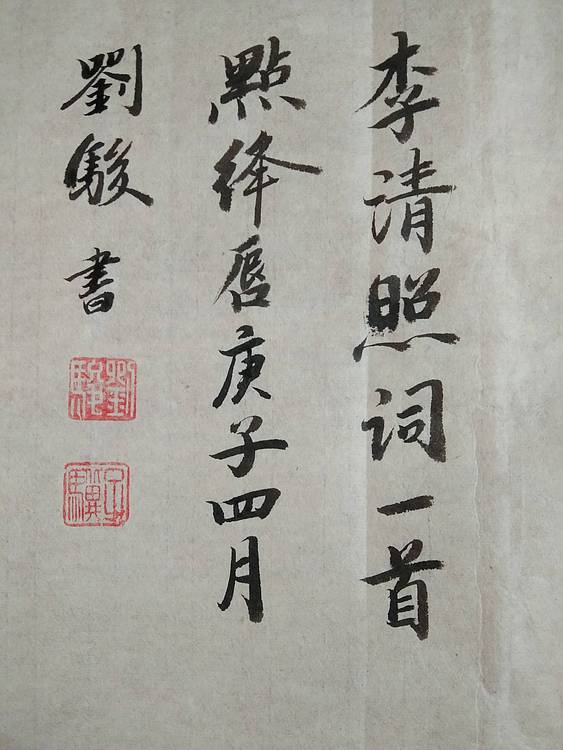 李清照词一首
點絳唇庚子四月
劉駿書
劉駿